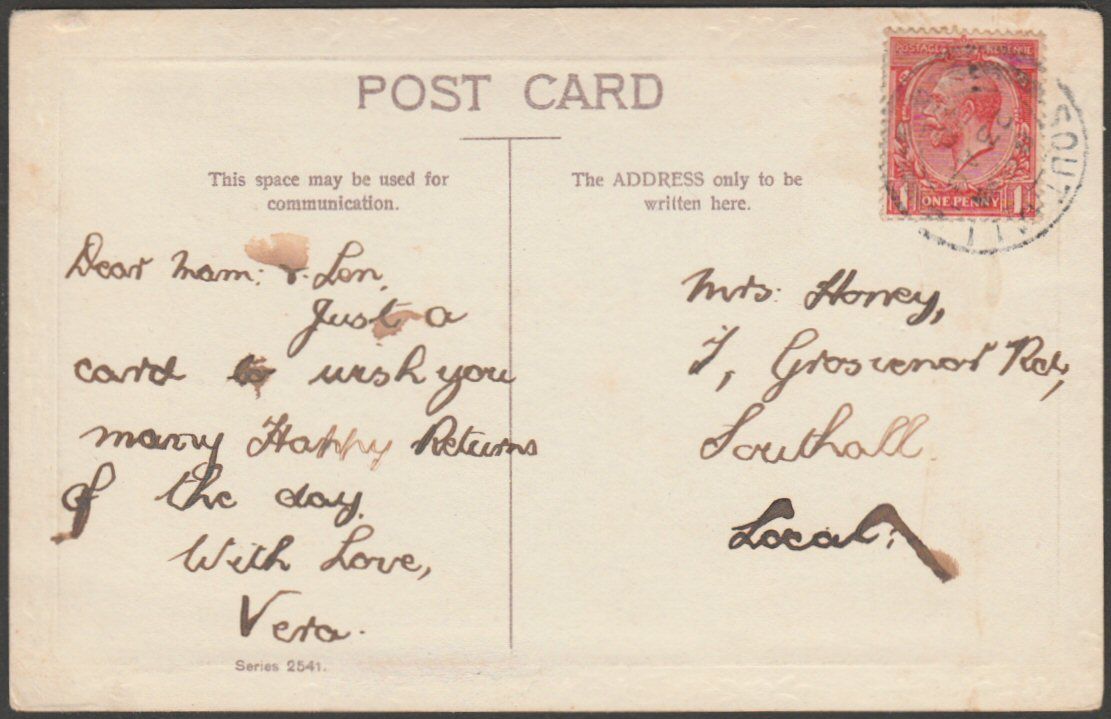 POST CARD
This space may be used for
communication.
The ADDRESS only to be
written here.
POSTAGE REVENUE
1 ONE PENNY 1
SOUTHALL
Dear Mam: & Len,
Just a
card to wish you
many Happy Returns
of the day.
With Love,
Vera.
Series 2541.
Mrs. Honey,
7, Grosvenor Rd,
Southall.
Local.